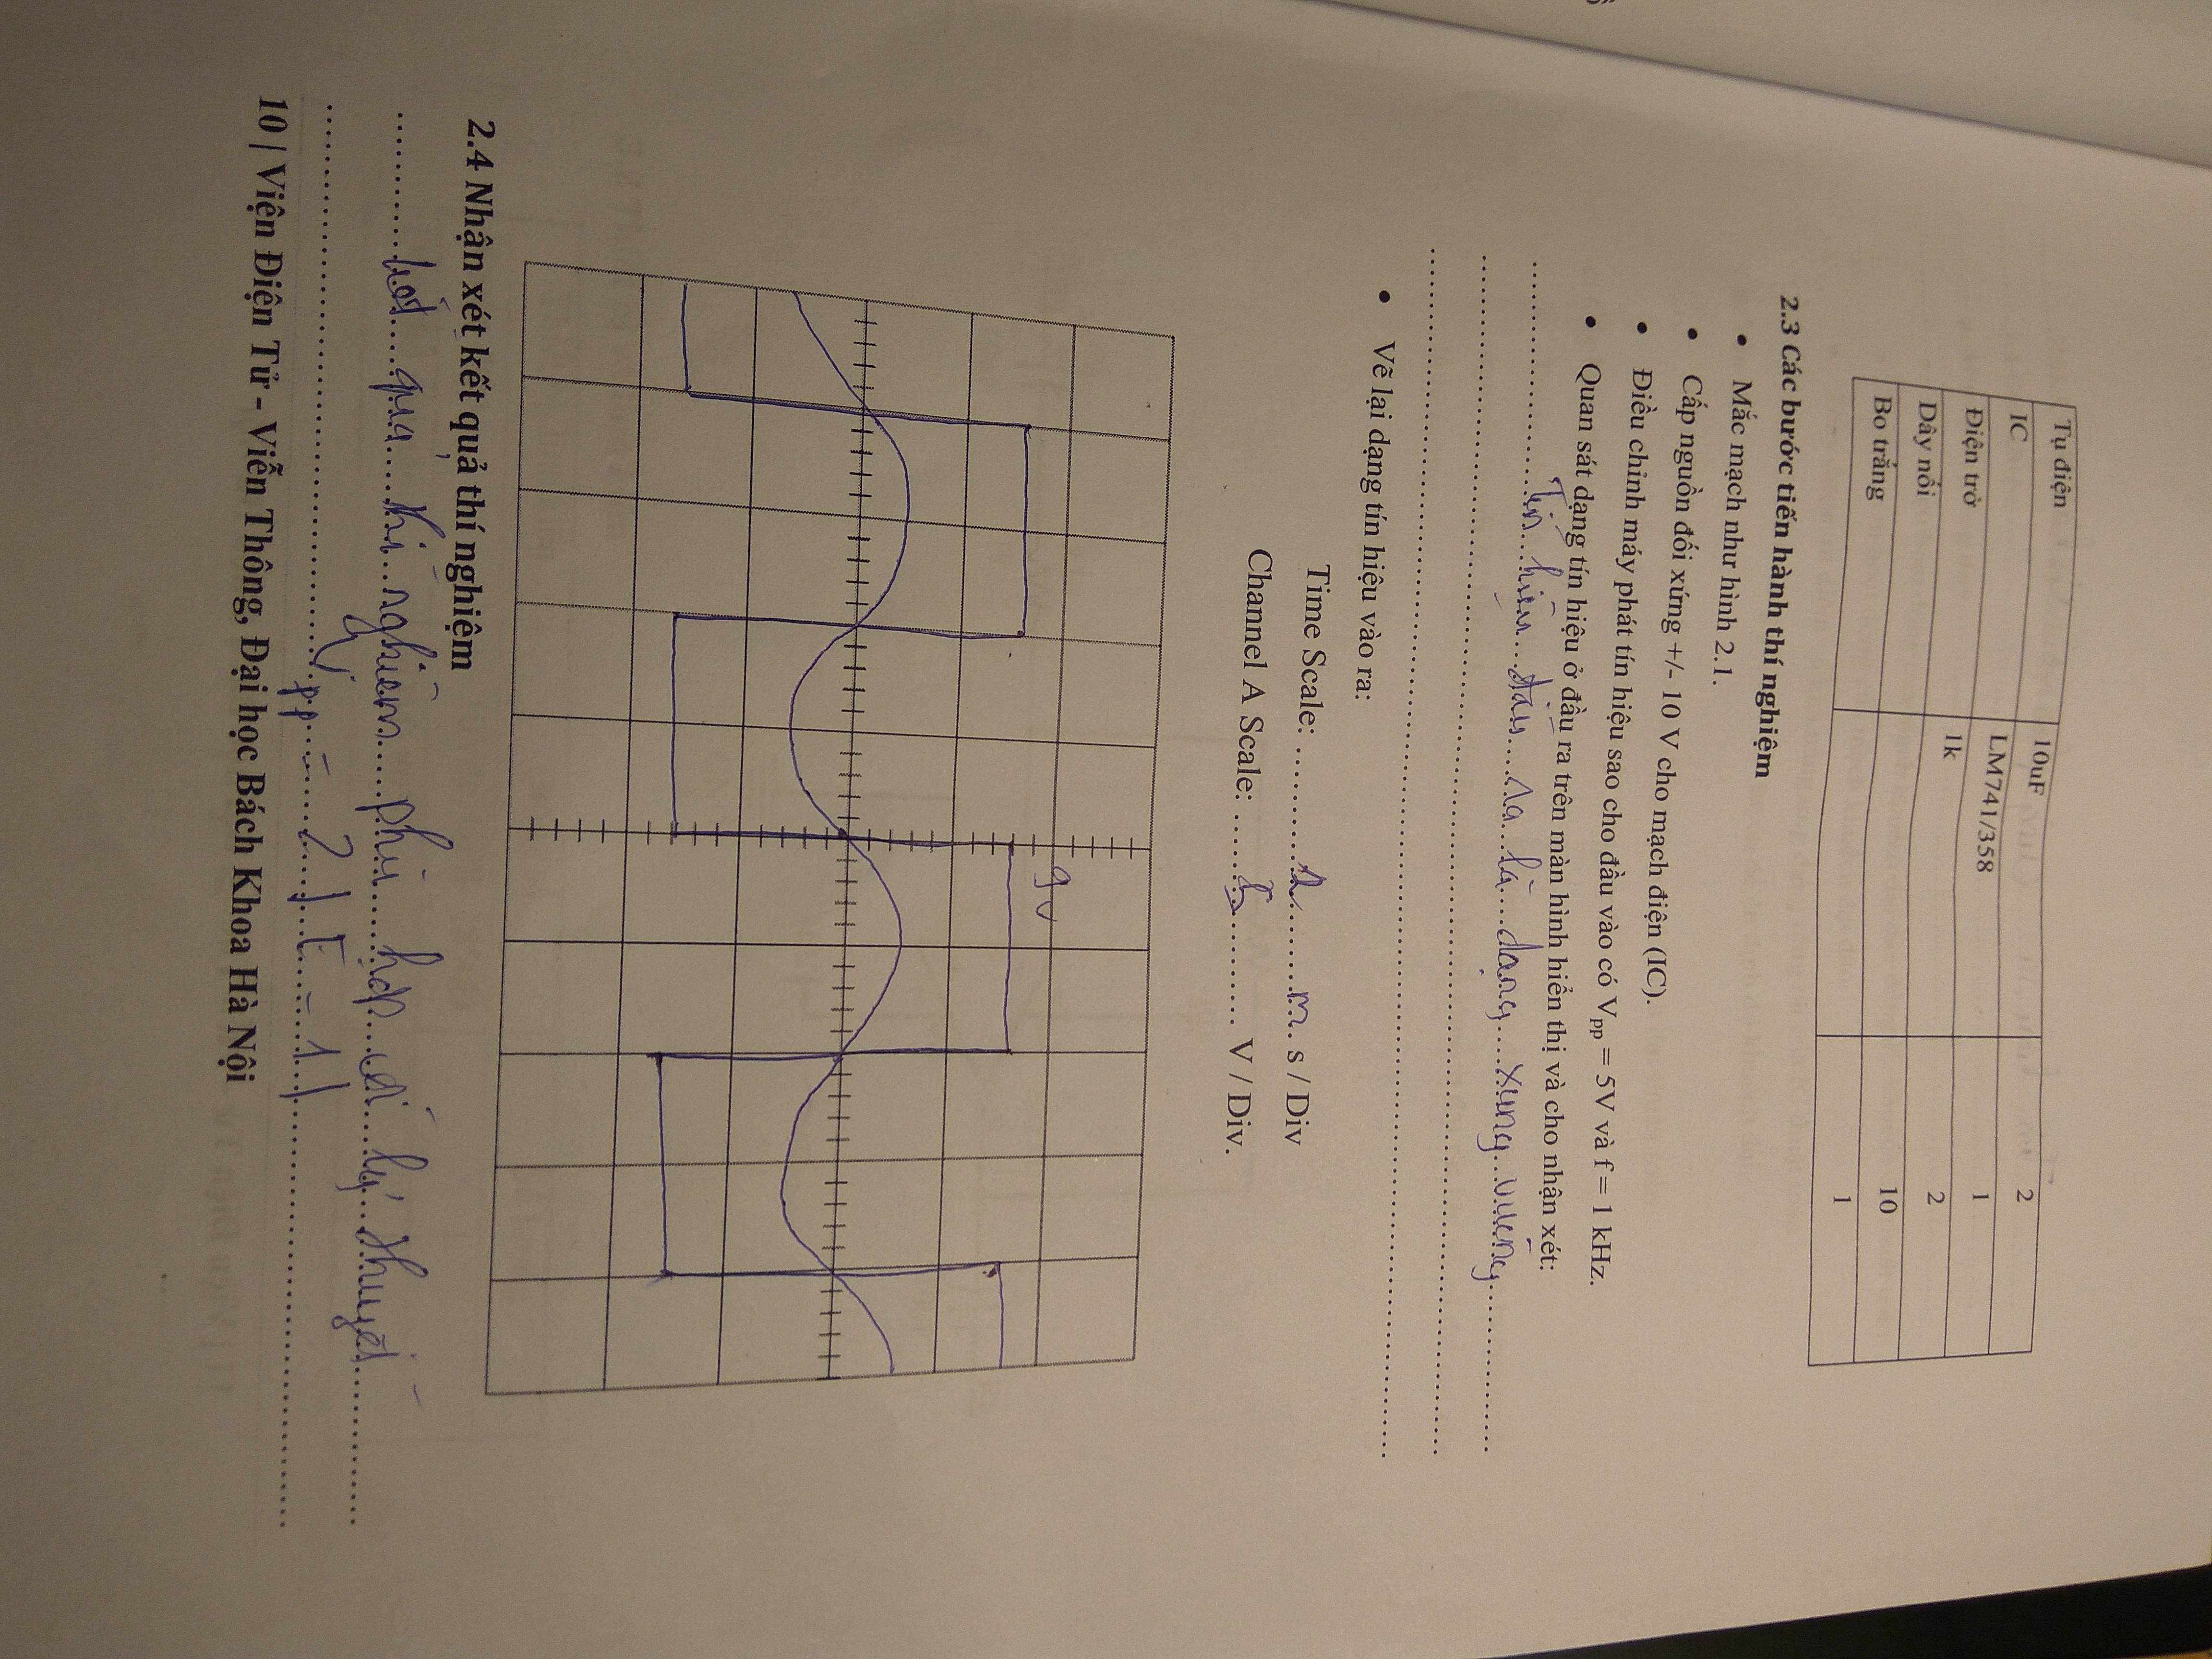 Tụ điện 10uF 2
IC LM741/358 1
Điện trở 1k 2
Dây nối 10
Bo trắng 1
2.3 Các bước tiến hành thí nghiệm
• Mắc mạch như hình 2.1.
• Cấp nguồn đối xứng +/- 10 V cho mạch điện (IC).
• Điều chỉnh máy phát tín hiệu sao cho đầu vào có Vpp = 5V và f = 1 kHz.
• Quan sát dạng tín hiệu ở đầu ra trên màn hình hiển thị và cho nhận xét:
Tín hiệu đầu ra là dạng xung vuông
• Vẽ lại dạng tín hiệu vào ra:
Time Scale: m s / Div
Channel A Scale: 5 V / Div.
9v
2.4 Nhận xét kết quả thí nghiệm
kết quả thí nghiệm phù hợp với lý thuyết
Vpp =
10 | Viện Điện Tử - Viễn Thông, Đại học Bách Khoa Hà Nội